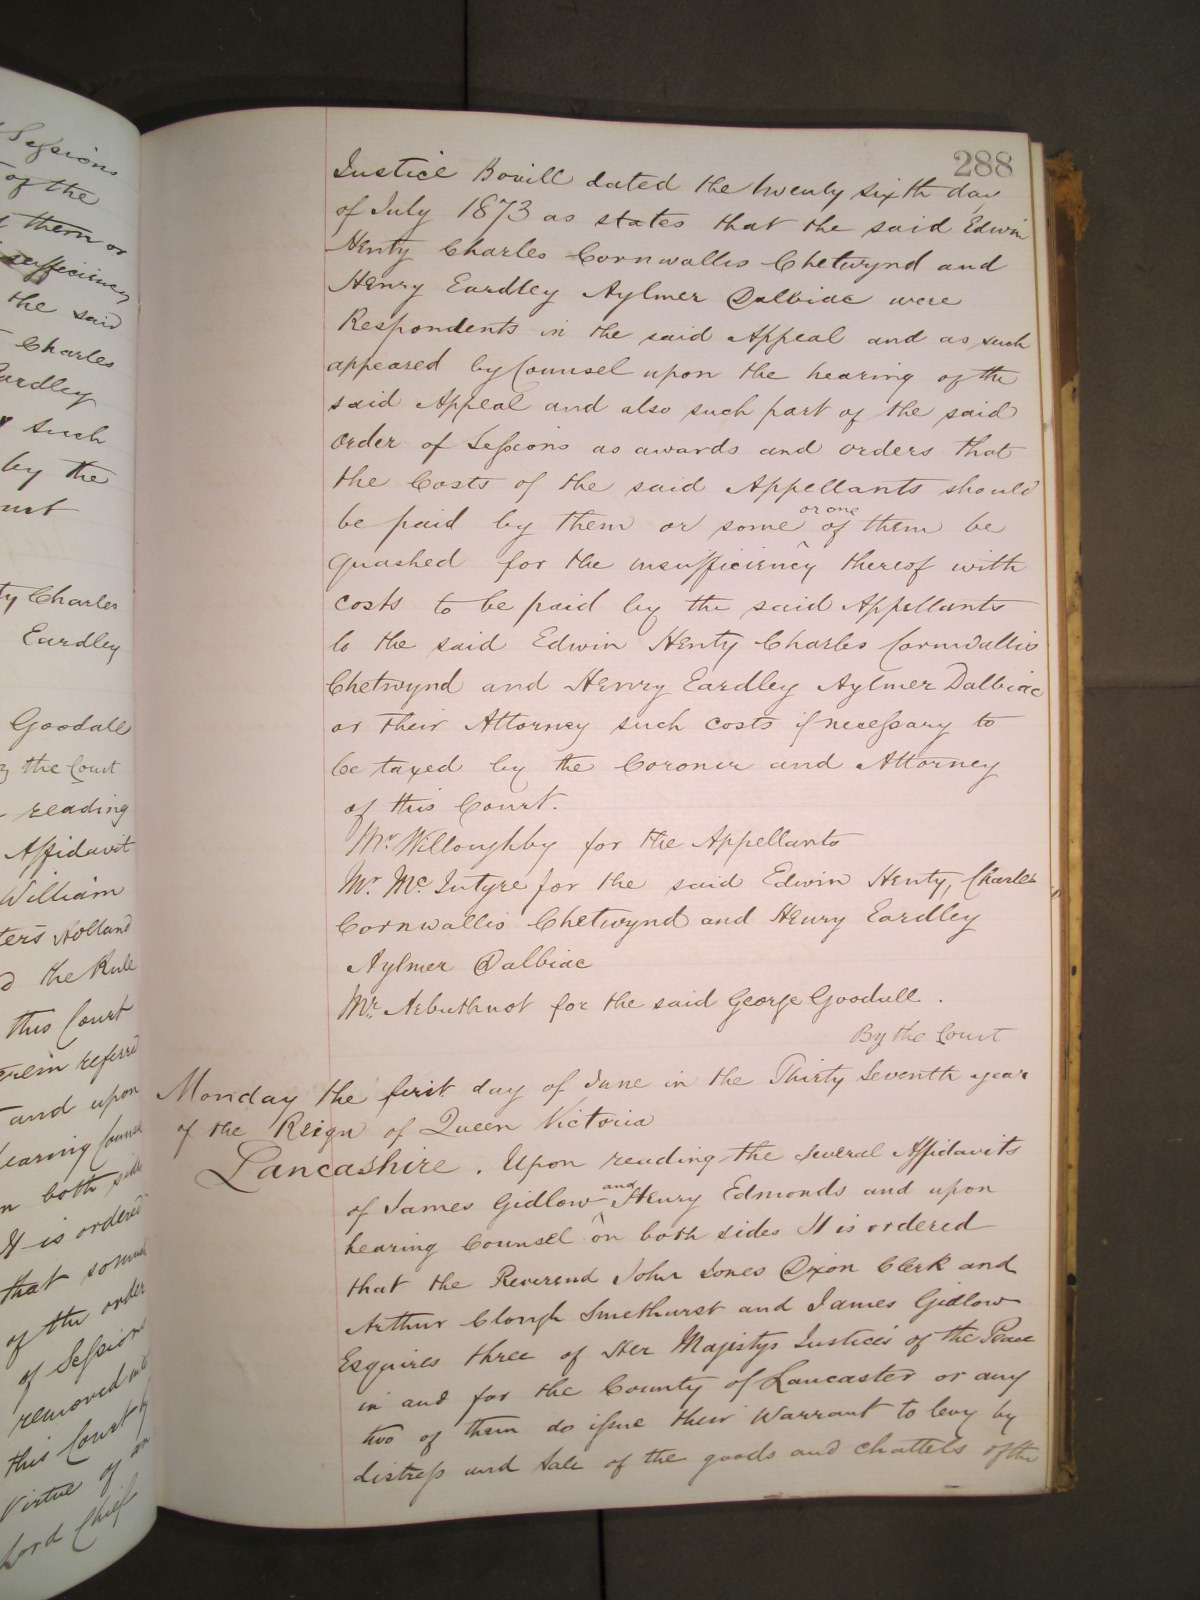 Sessions
of the
them or
sufficiency
the said
Charles
Eardley
such
by the
Charles
Eardley
Goodall
the Court
reading
Affidavit
William
Holland
the Rule
this Court
referred
and upon
hearing Counsel
on both sides
It is ordered
that so much
of the order
of Sessions
removed into
this Court by
Virtue of an
Lord Chief
288
Justice Bovill dated the twenty sixth day
of July 1873 as states that the said Edwin
Henty Charles Cornwallis Chetwynd and
Henry Eardley Aylmer Dalbiac were
Respondents in the said Appeal and as such
appeared by Counsel upon the hearing of the
said Appeal and also such part of the said
order of Sessions as awards and orders that
the Costs of the said Appellants should
be paid by them or some or one of them be
quashed for the insufficiency thereof with
costs to be paid by the said Appellants
to the said Edwin Henty Charles Cornwallis
Chetwynd and Henry Eardley Aylmer Dalbiac
or their Attorney such costs if necessary to
be taxed by the Coroner and Attorney
of this Court.
Mr. Willoughby for the Appellants
Mr. Mc. Intyre for the said Edwin Henty, Charles
Cornwallis Chetwynd and Henry Eardley
Aylmer Dalbiac
Mr. Arbuthnot for the said George Goodall.
By the Court
Monday the first day of June in the Thirty Seventh year
of the Reign of Queen Victoria
Lancashire. Upon reading the several Affidavits
of James Gidlow and Henry Edmonds and upon
hearing Counsel on both sides It is ordered
that the Reverend John Jones Dixon Clerk and
Arthur Clough Smethurst and James Gidlow
Esquires three of Her Majestys Justices of the Peace
in and for the County of Lancaster or any
two of them do issue their Warrant to levy by
distress and sale of the goods and chattels of the